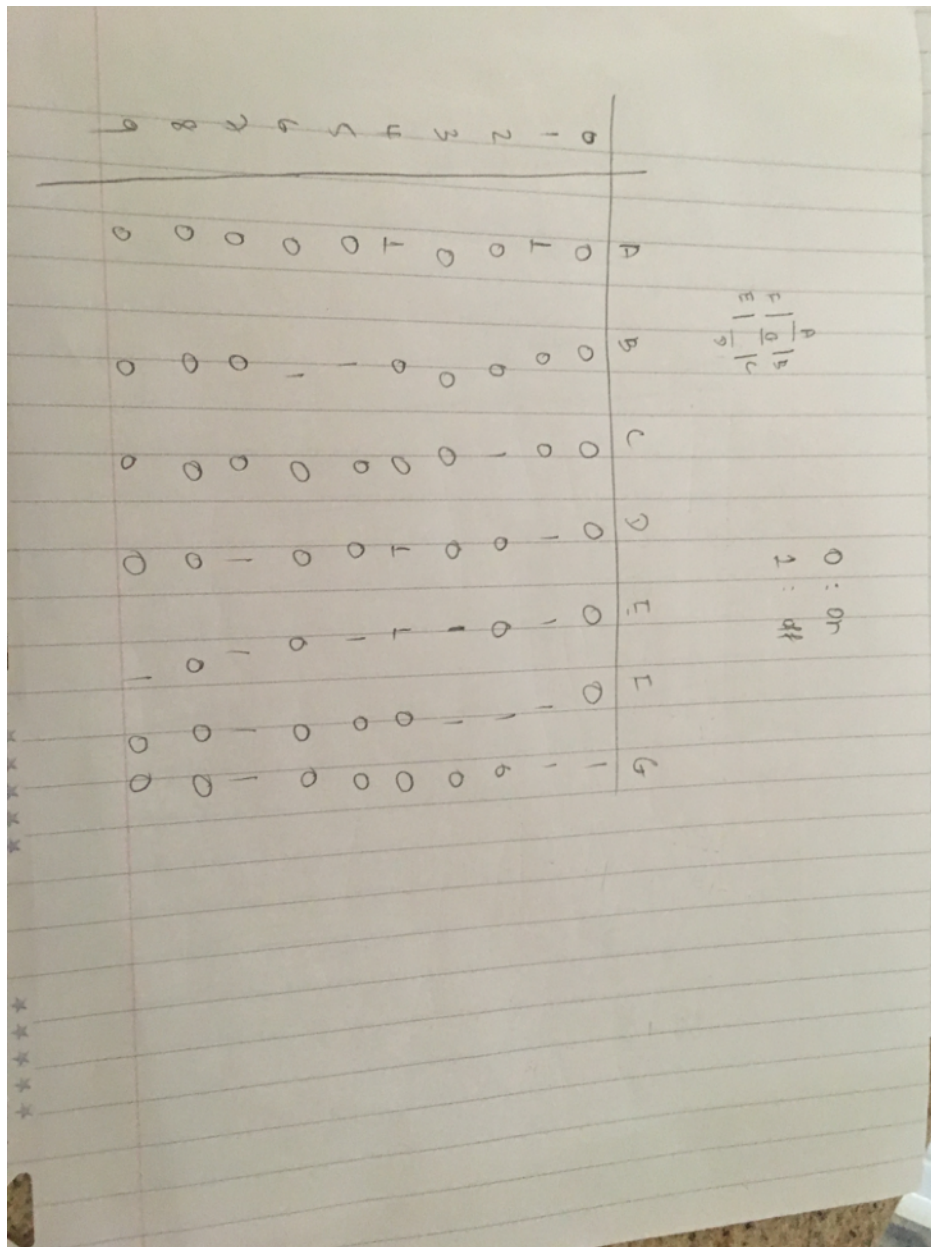 0 : on
1 : off
A
F G B
E C
D
A B C D E F G
0 0 0 0 0 0 0 1
1 1 0 0 1 1 1 1
2 0 0 1 0 0 1 0
3 0 0 0 0 1 1 0
4 1 0 0 1 1 0 0
5 0 1 0 0 1 0 0
6 0 1 0 0 0 0 0
7 0 0 0 1 1 1 1
8 0 0 0 0 0 0 0
9 0 0 0 0 1 0 0